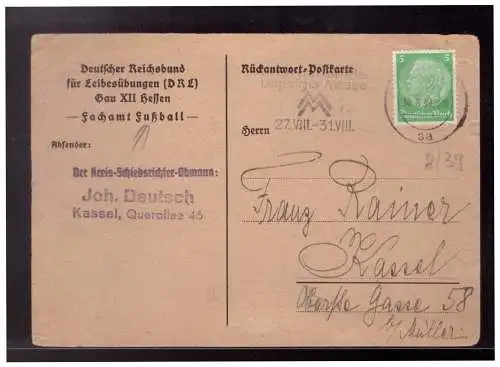 Deutscher Reichsbund
für Leibesübungen (DRL)
Gau XII Hessen
— Fachamt Fußball —
Absender:
Der Kreis-Schiedsrichter-Obmann:
Joh. Deutsch
Kassel, Querallee 46
Rückantwort-Postkarte
Leipziger Messe
27.VIII.-31.VIII.
Herrn
5 5
Deutsches Reich
8/39
Franz Rainer
Kassel
Gasse 58
b/Müller